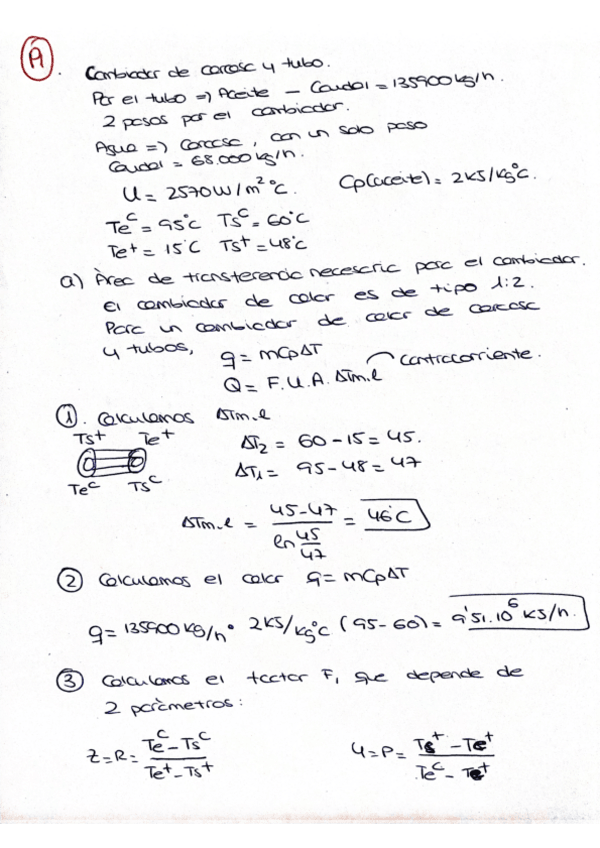 A.
Cambiador de carcasa y tubo.
Por el tubo => Aceite - Caudal = 135900 kg/h.
2 pasos por el cambiador.
Agua => Carcasa, con un solo paso
Caudal = 68.000 kg/h.
U = 2570 W/m² °C. Cp(aceite) = 2 KJ/kg°C.
Te^c = 95°C Ts^c = 60°C
Te^t = 15°C Ts^t = 48°C
a) Àrea de transferencia necesaria para el cambiador.
El cambiador de calor es de tipo 1:2.
Para un cambiador de calor de carcasa
y tubos, q = mCpΔT
Q = F.U.A. ΔTm.l contracorriente.
1. Calculamos ΔTm.l
Ts^t Te^t
Te^c Ts^c
ΔT2 = 60 - 15 = 45.
ΔT1 = 95 - 48 = 47
ΔTm.l = (45-47)/(ln 45/47) = 46°C
2 Calculamos el calor q = mCpΔT
q = 135900 kg/h · 2 KJ/kg°C (95-60) = 9'51.10^6 KJ/h.
3 Calculamos el factor F, que depende de
2 paràmetros:
Z=R= (Te^c - Ts^c)/(Te^t - Ts^t) Y=P= (Ts^t - Te^t)/(Te^c - Te^t)